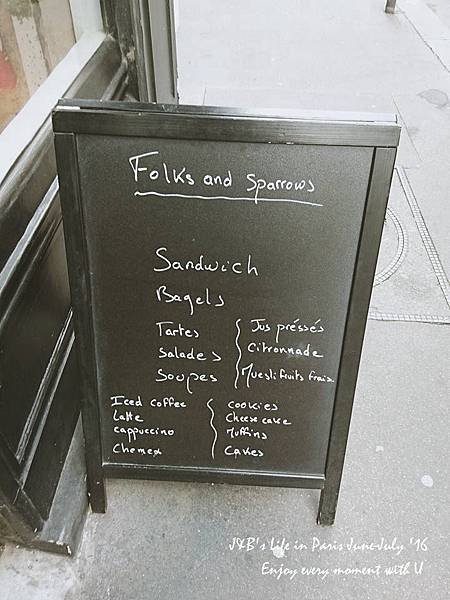 Folks and Sparrows
Sandwich
Bagels
Tartes
Salades
Soupes
Jus préssés
Citronnade
Muesli fruits frais
Iced coffee
Latte
cappuccino
Chemex
Cookies
Cheese cake
Muffins
Cakes
J&B's life in Paris June-July '16
Enjoy every moment with U